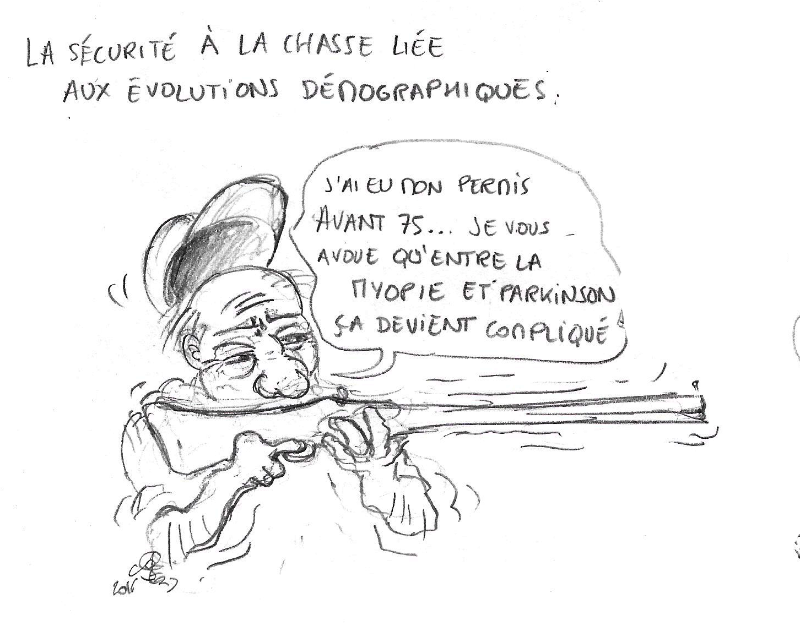 LA SÉCURITÉ À LA CHASSE LIÉE
AUX ÉVOLUTIONS DÉMOGRAPHIQUES.
J'AI EU MON PERMIS
AVANT 75... JE VOUS
AVOUE QU'ENTRE LA
MYOPIE ET PARKINSON
ÇA DEVIENT COMPLIQUÉ
2016